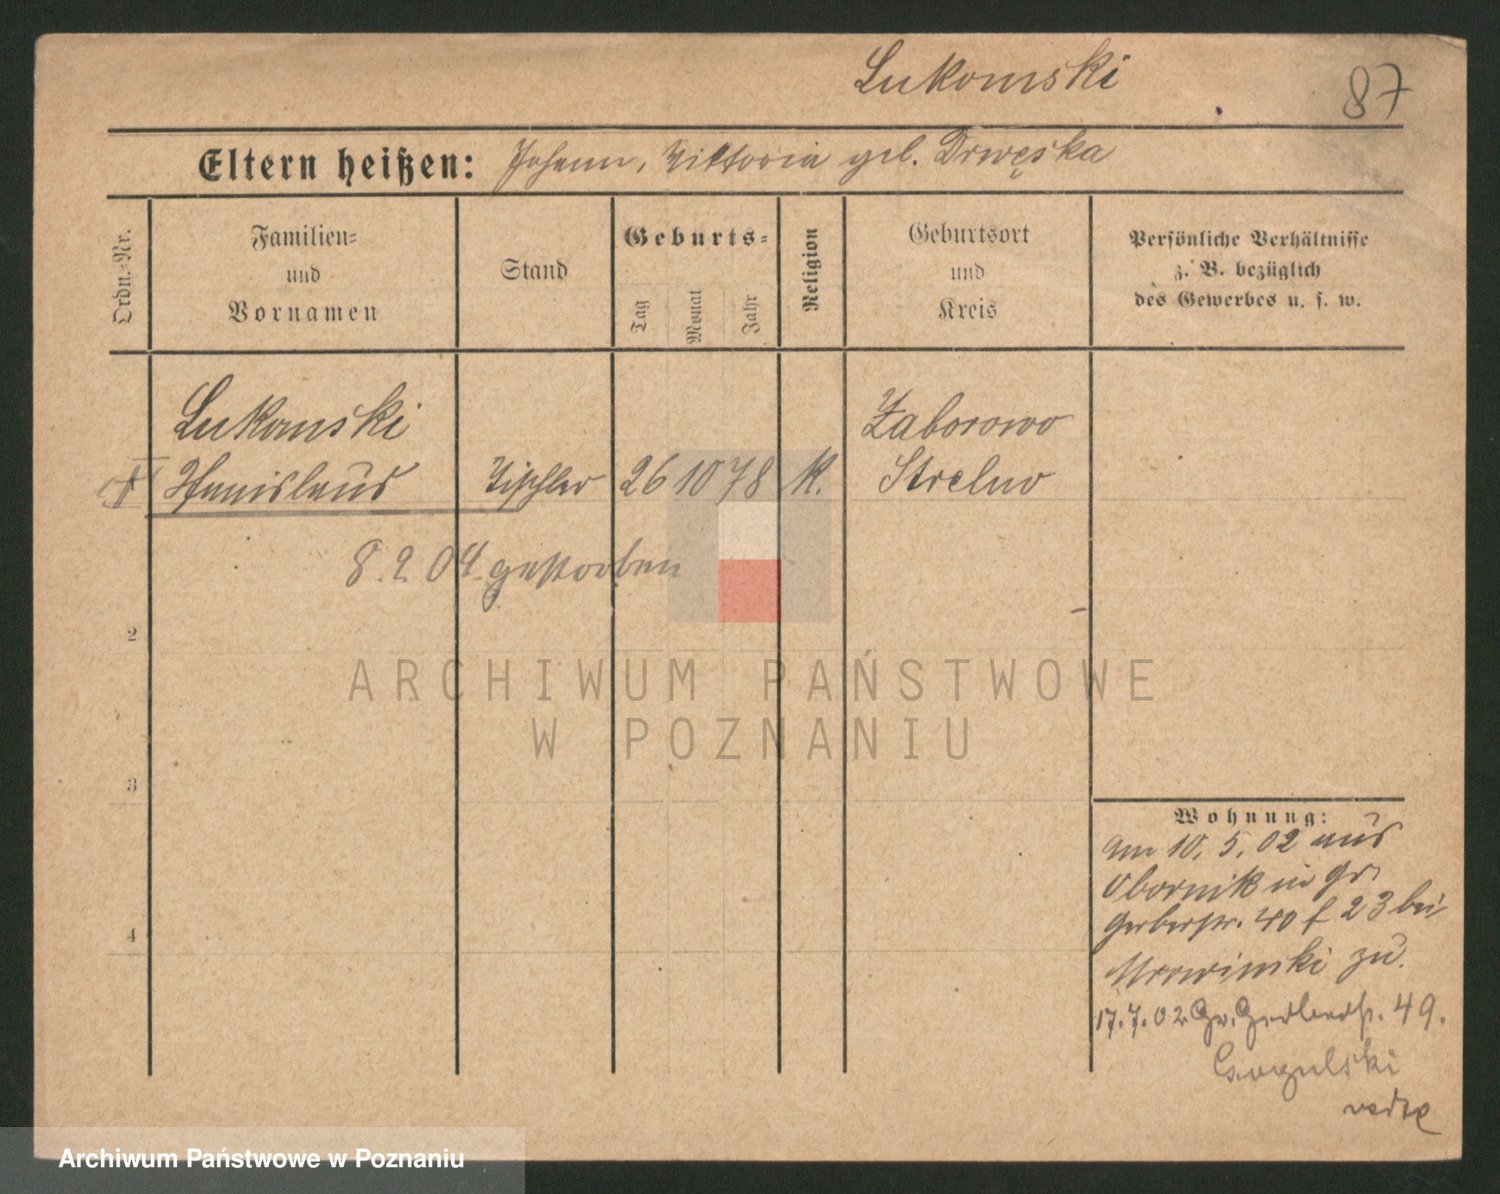 Lukomski
87
Eltern heißen: Johann, Viktoria geb. Drwęska
Ordn.-Nr.
Familien-
und
Vornamen
Stand
Geburts-
Tag
Monat
Jahr
Religion
Geburtsort
und
Kreis
Persönliche Verhältnisse
z. B. bezüglich
des Gewerbes u. s. w.
Lukomski
Stanislaus
Tischler
26 10 78
K.
Zaborowo
Strelno
8.2.04 gestorben
2
3
4
Wohnung:
am 10. 5. 02 aus
Obornik in Gr.
Gerberstr. 40 f 23 bei
Mrowinski zu.
17.7.02 Gr. Gerberstr. 49.
ARCHIWUM PAŃSTWOWE
W POZNANIU
Archiwum Państwowe w Poznaniu